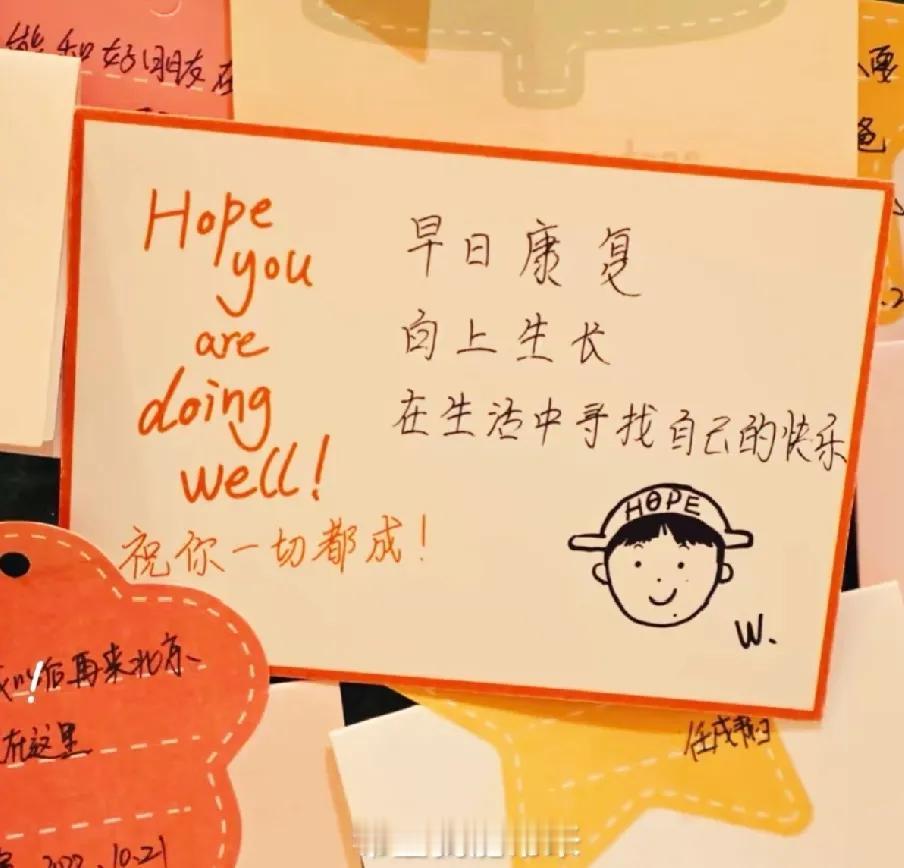 能和好朋友在
Hope
you
are
doing
well!
祝你一切都成!
早日康复
向上生长
在生活中寻找自己的快乐
HOPE
W.
后再来北京
在这里
2022.10.21